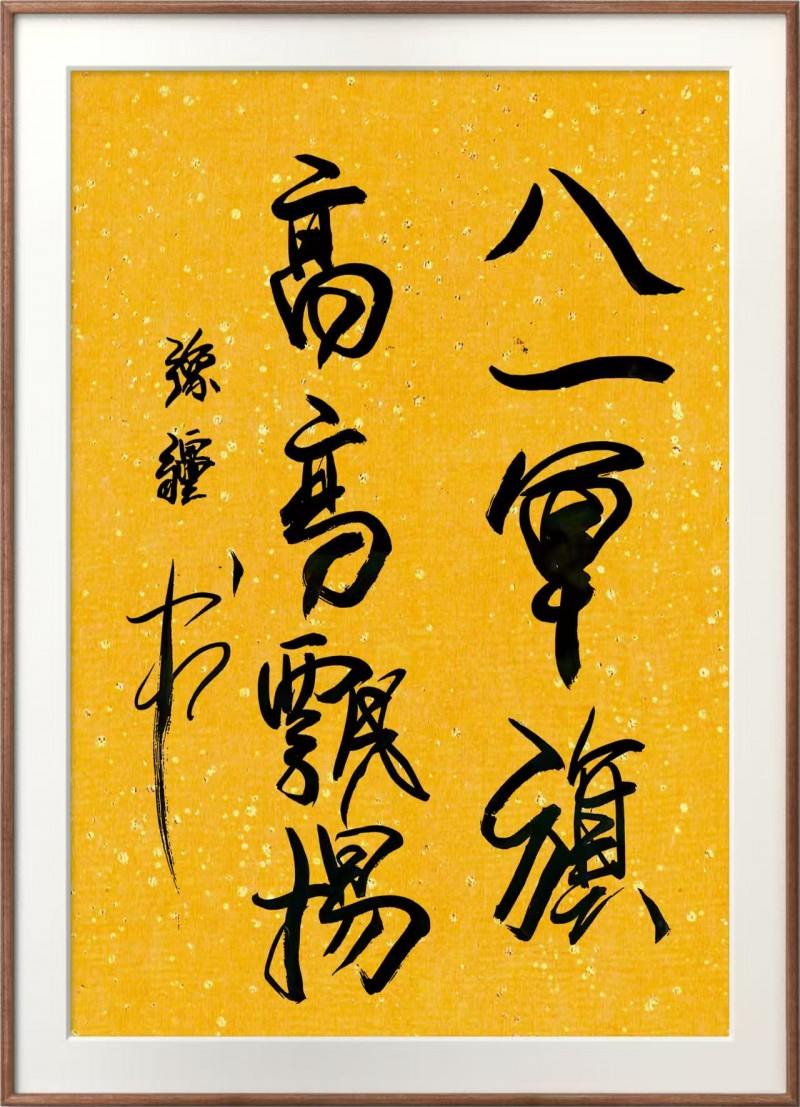 八一軍旗
高高飄揚
孫疆书